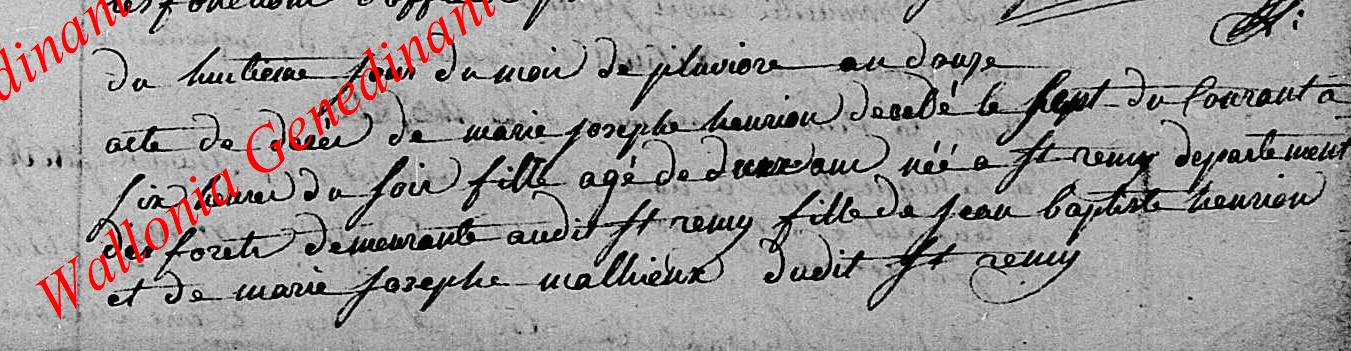 du huitieme jour du moi de pluviore an douze
acte de deces de marie josephe henrion decedé le sept du Courant a
six heures du soir fille agé de deux ans néé a St remy departement
des forets demeurante audit St remy fille de jean baptiste henrion
et de marie josephe mathieux dudit St remy
Wallonia Genedinant